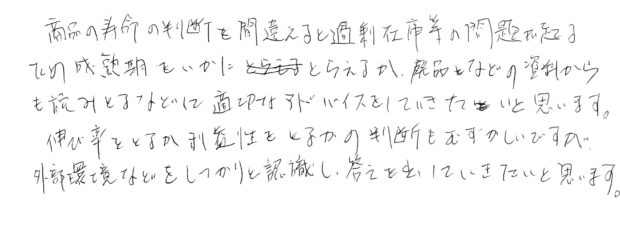 商品の寿命の判断も間違えると過剰在庫等の問題が起る
ため成熟期をいかにとらえるか、廃品となどの資料から
も読みとるなどして適切なアドバイスをしていきたいと思います。
伸び率をとるか利益性をとるかの判断もむずかしいですが、
外部環境などをしっかりと認識し、答えを出していきたいと思います。